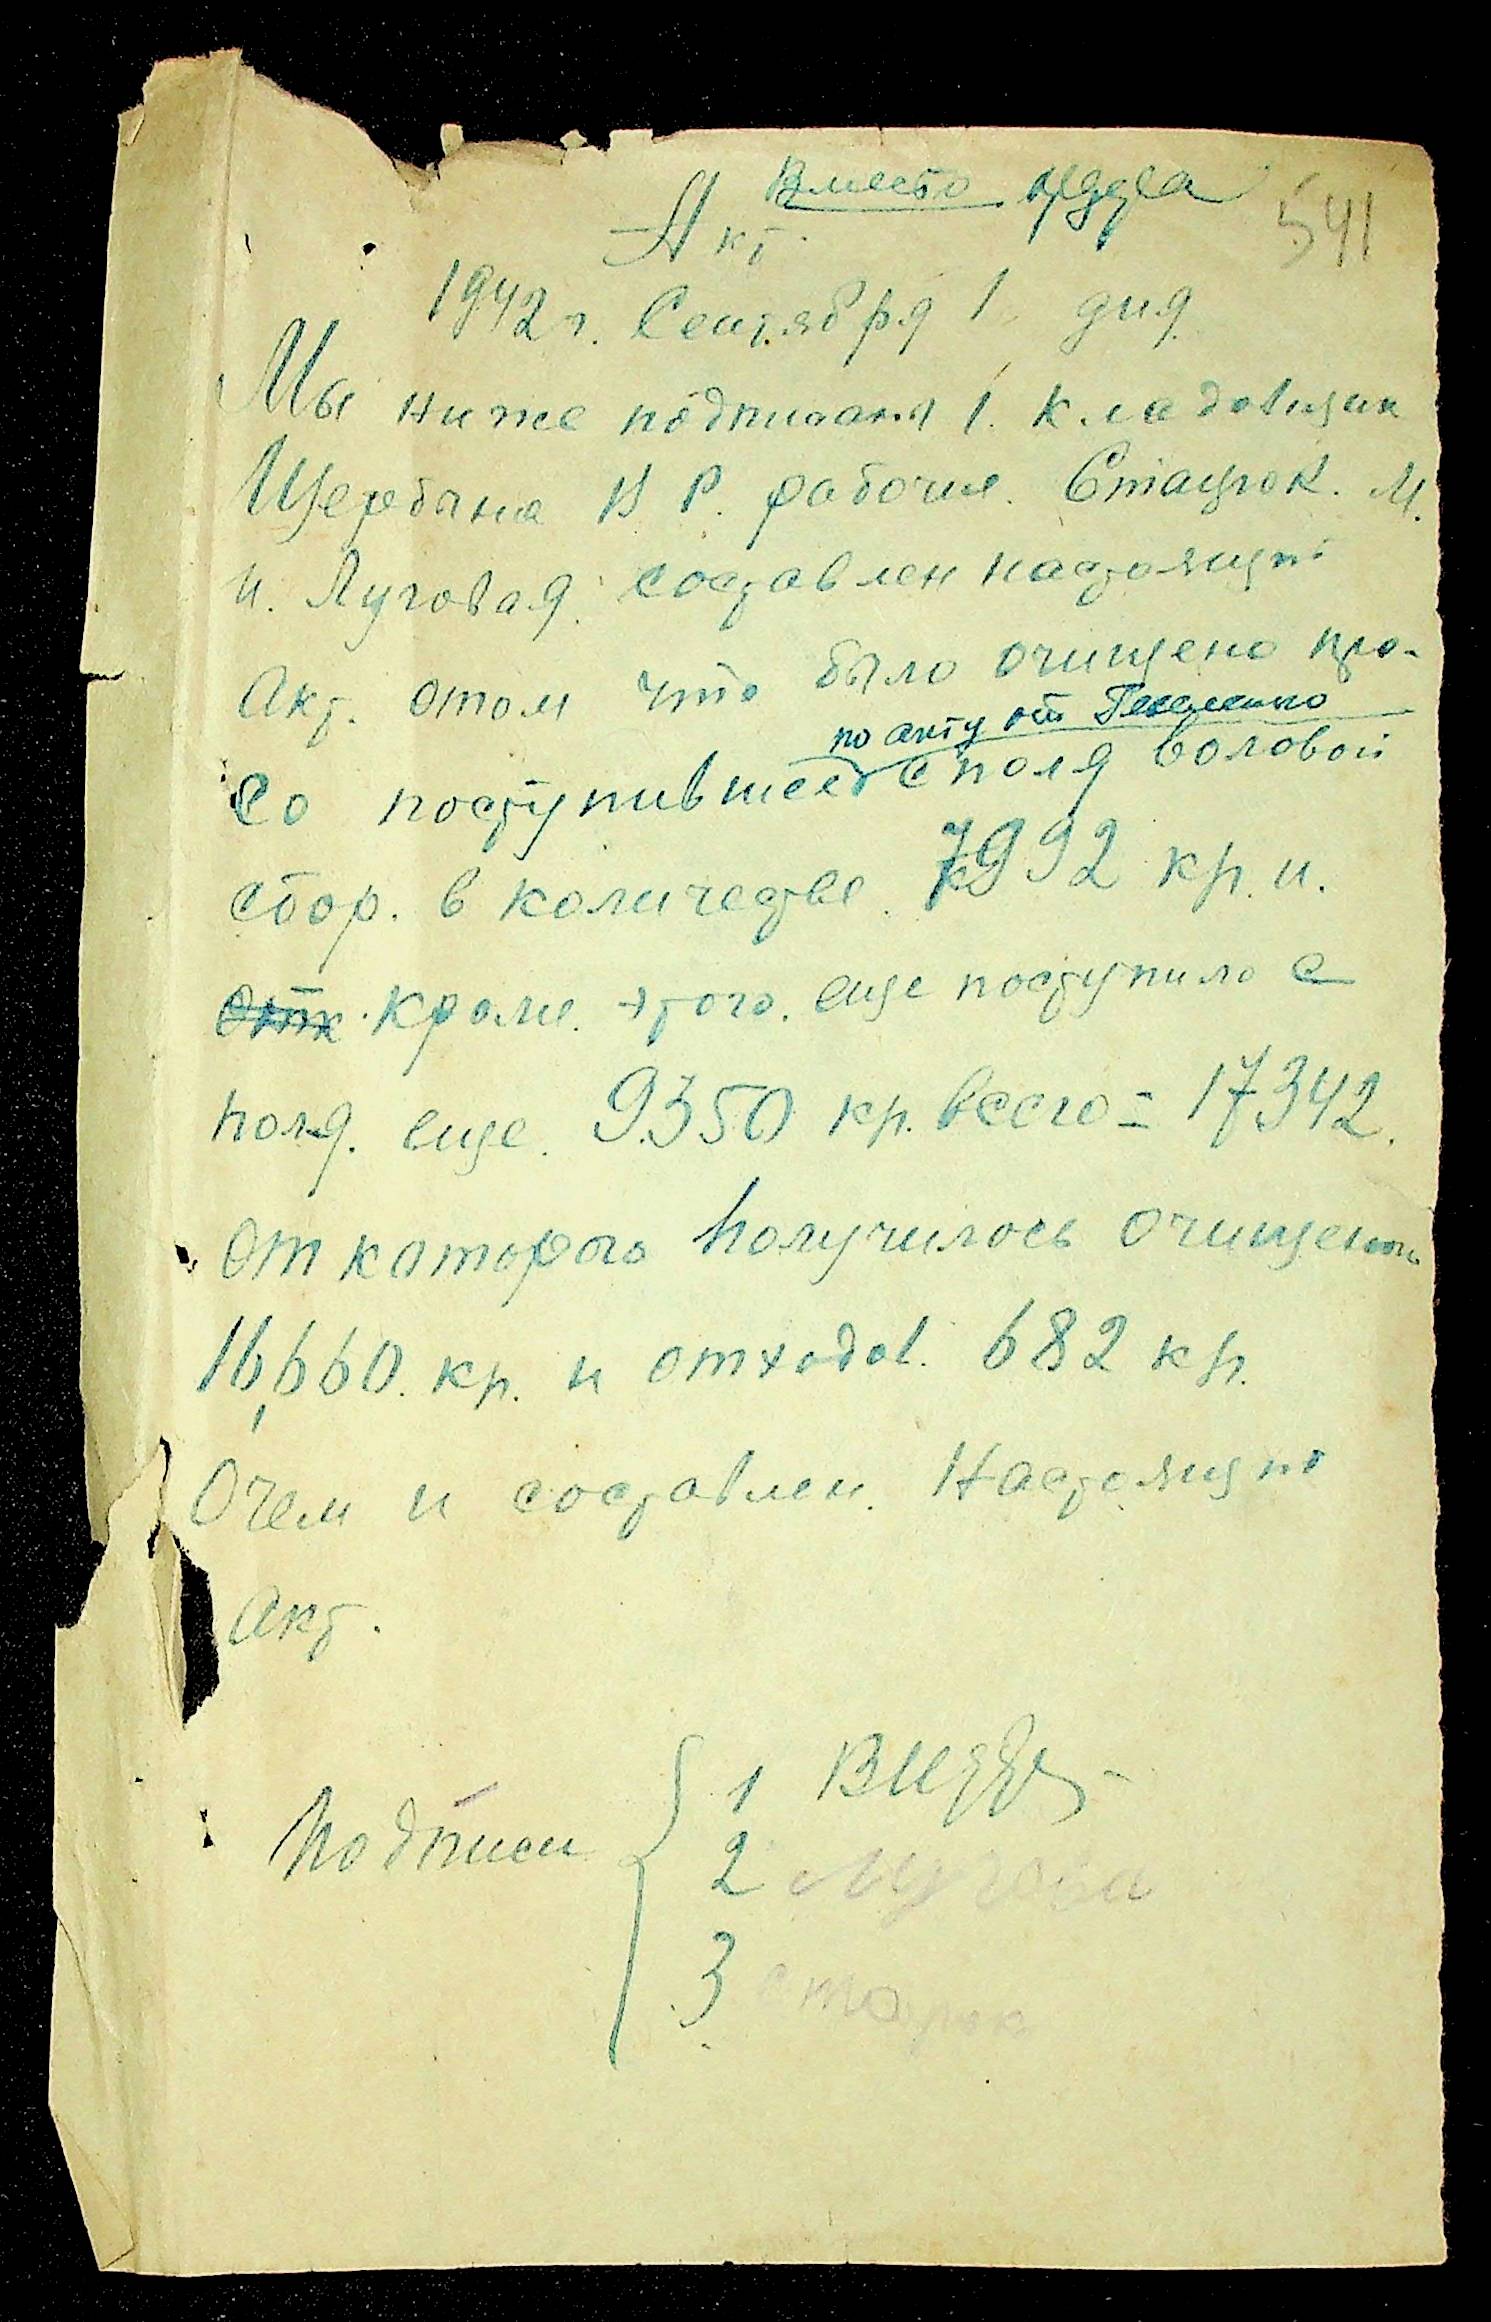 Вместо
541
Акт.
1942 г. Сентября 1 дня
Мы ниже подписани 1. кладовщик
Щербина В Р. рабочие. М.
и. Луговая. составлен настоящий
Акт. отом что было очищено про-
по акту от
со поступившее с поля воловой
сбор. в количестве. 7992 кр. и.
Кроме. этого. еще поступило с
поля. еще. 9350 кр. всего = 17342.
от которого получилось очищеного
16,660. кр. и отходов. 682 кр.
Очем и составлен. Настоящий
Акт.
Подписи
1
2 Лугова
3